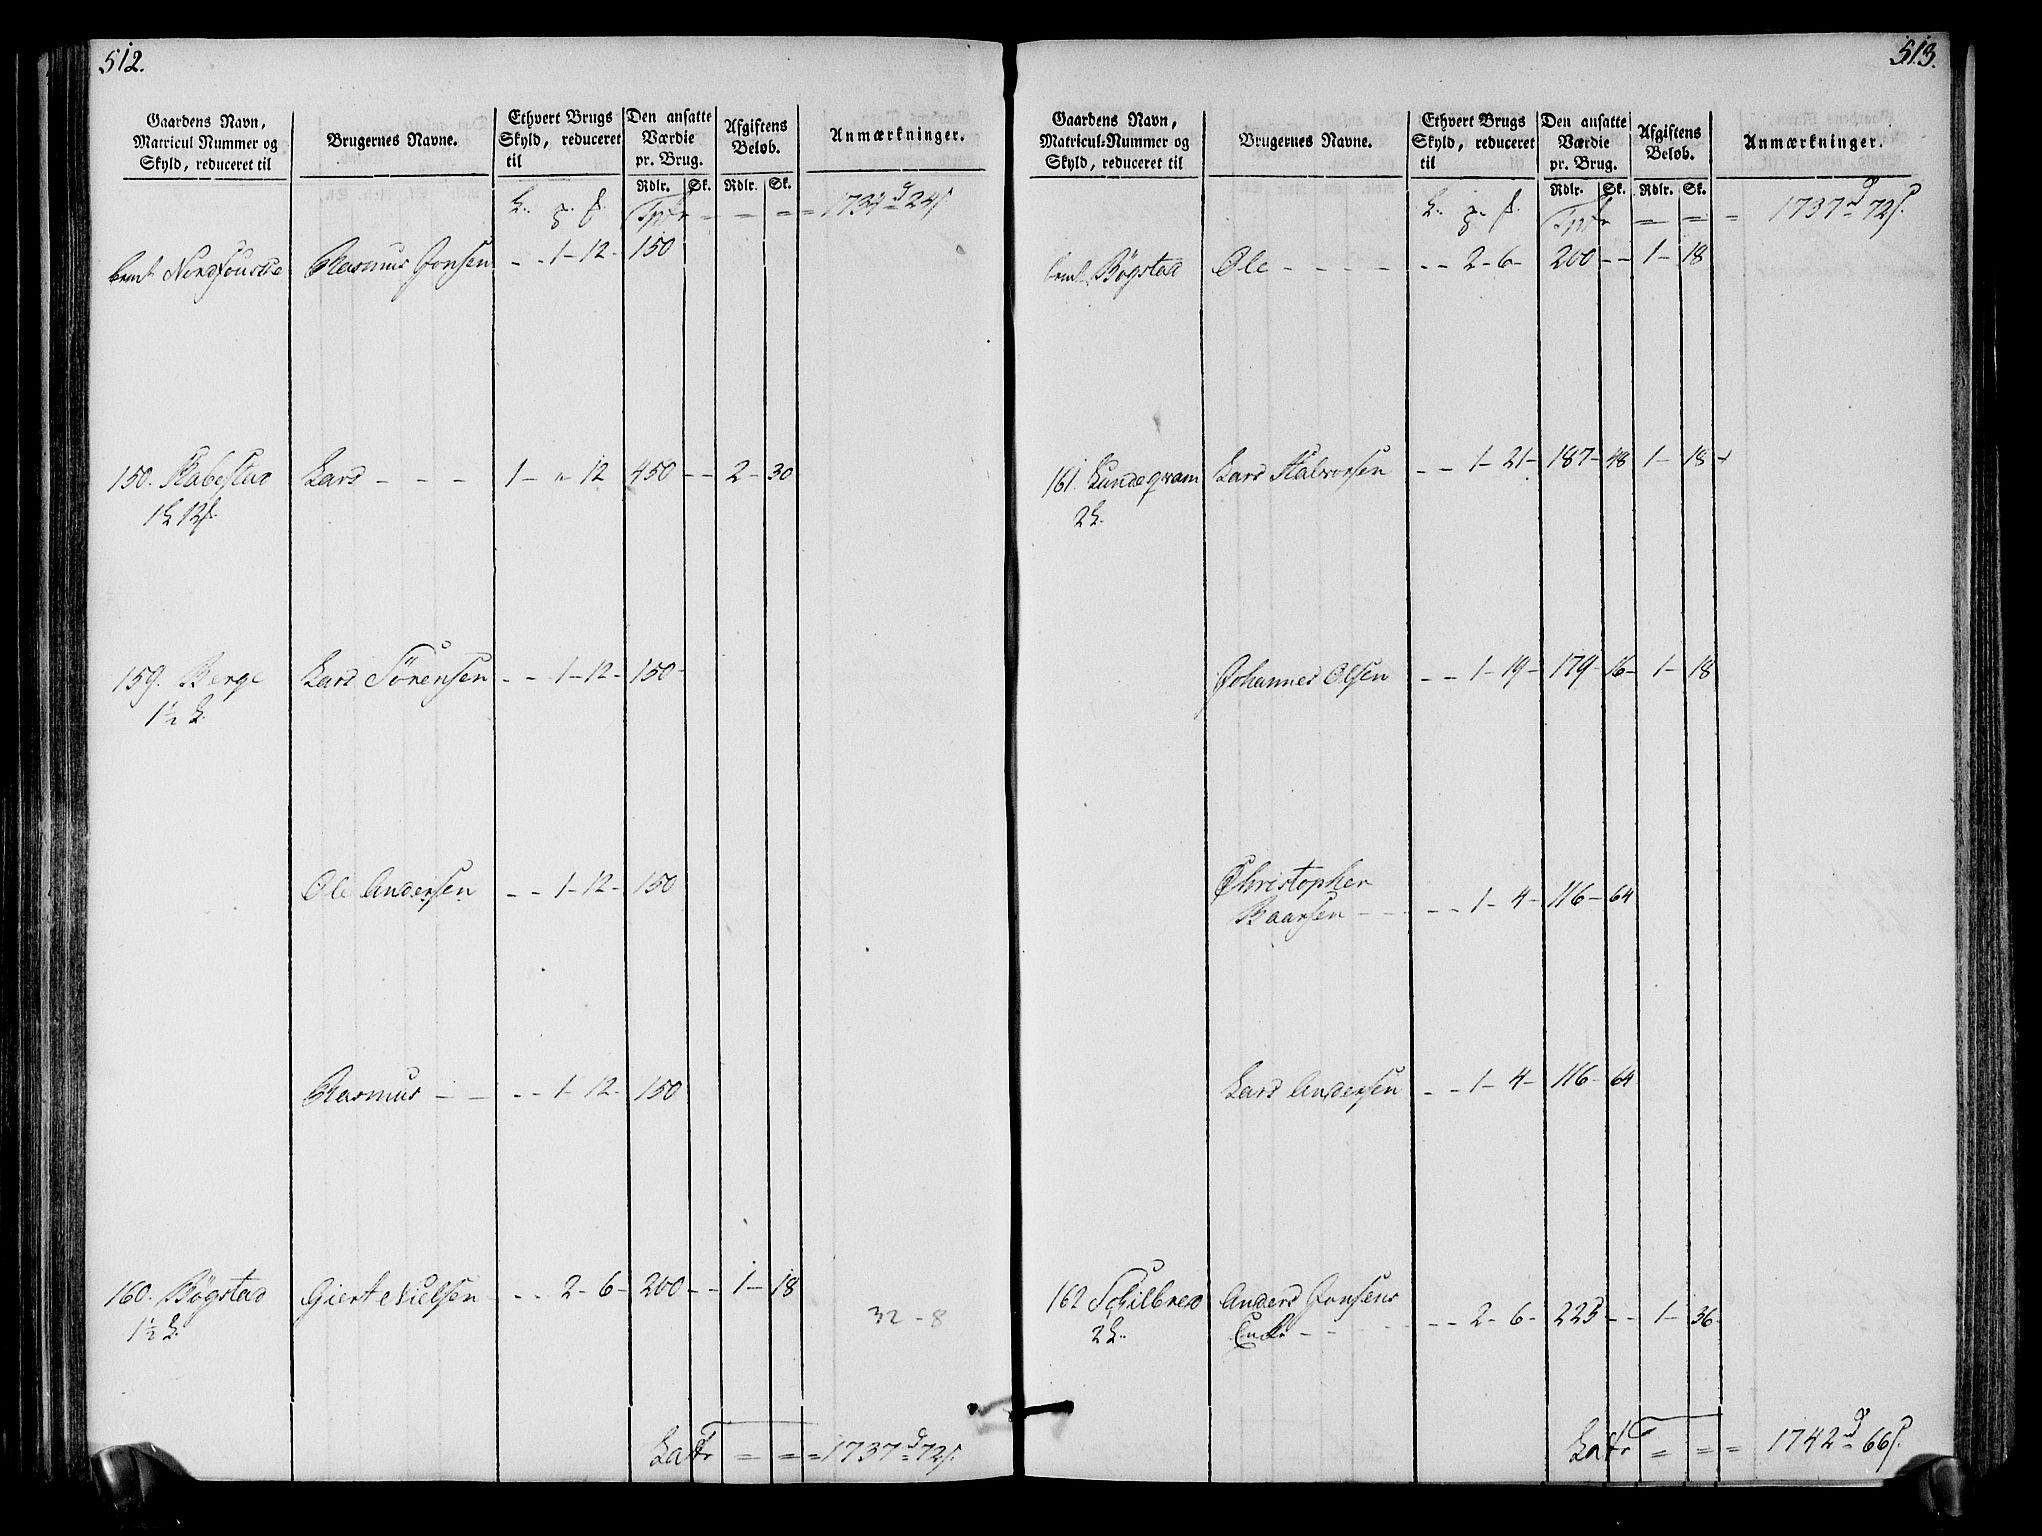 512.
Gaardens Navn,
Matricul Nummer og
Skyld, reduceret til
Brugernes Navne.
Ethvert Brugs
Skyld, reduceret
til
Den ansatte
Værdie
pr. Brug.
Rdlr. Sk.
Afgiftens
Beløb.
Rdlr. Sk.
Anmærkninger.
Tpfr - - = 24
Rasmus Jonsen - - 1 - 12 - 150
150. Lars - - - 1 - " 12 450 - - 2 - 30
1 12
159. Berge Lars Sørensen - - 1 - 12 - 150 -
1½
Ole Andersen - - 1 - 12 - 150
Rasmus - - - - 1 - 12 - 150
160. Bøgstad Giert Nielsen - - 2 - 6 - 200 - - 1 - 18
1½
32 - 8
Latr = = = 1737 72
513.
Gaardens Navn,
Matricul-Nummer og
Skyld, reduceret til
Brugernes Navne.
Ethvert Brugs
Skyld, reduceret
til
Den ansatte
Værdie
pr. Brug.
Rdlr. Sk.
Afgiftens
Beløb.
Rdlr. Sk.
Anmærkninger.
Tpfr = = = 1737 72
Bøgstad Ole - - - - - - 2 - 6 - 200 - - 1 - 18
161. Lundeqvam Lars Halvorsen - - 1 - 21 - 187 - 48 1 - 18 +
2
Johannes Olsen - - 1 - 19 - 179 - 16 - 1 - 18
Christopher
Baarsen - - - - 1 - 4 - 116 - 64
Lars Andersen - - 1 - 4 - 116 - 64
162 Schilbred Anders Jonsens
2 Enke - - - - - 2 - 6 - 225 - - 1 - 36
Latr = = = 1742 66